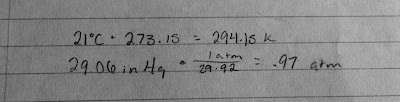 21°C + 273.15 = 294.15 K
29.06 in Hg * 1 atm / 29.92 = .97 atm